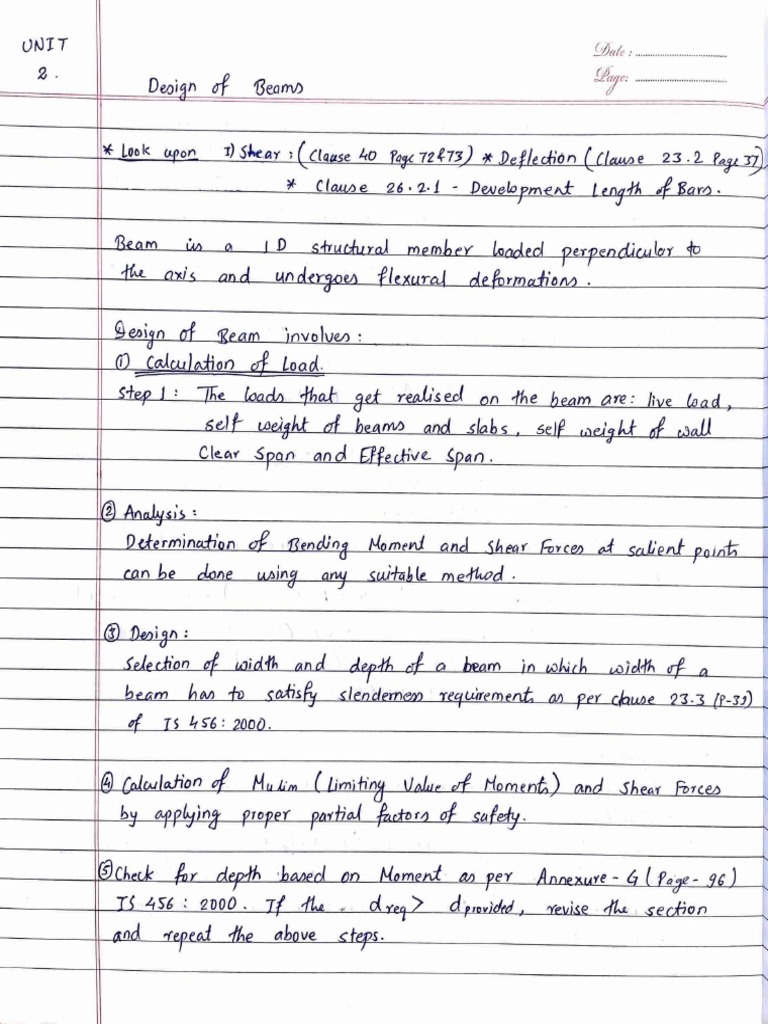 UNIT
2.
Date:
Page:
Design of Beams
* Look upon I) Shear : (Clause 40 Page 72&73) * Deflection (Clause 23.2 Page 37)
* Clause 26.2.1 - Development Length of Bars.
Beam is a 1D structural member loaded perpendicular to
the axis and undergoes flexural deformations.
Design of Beam involves:
① Calculation of Load.
Step 1: The loads that get realised on the beam are: live load,
self weight of beams and slabs, self weight of wall
Clear Span and Effective Span.
② Analysis:
Determination of Bending Moment and Shear Forces at salient points
can be done using any suitable method.
③ Design:
Selection of width and depth of a beam in which width of a
beam has to satisfy slenderness requirements as per clause 23.3 (P-39)
of IS 456:2000.
④ Calculation of Mulim (Limiting Value of Moments) and Shear Forces
by applying proper partial factors of safety.
⑤ Check for depth based on Moment as per Annexure-G (Page-96)
IS 456:2000. If the dreq > dprovided, revise the section
and repeat the above steps.